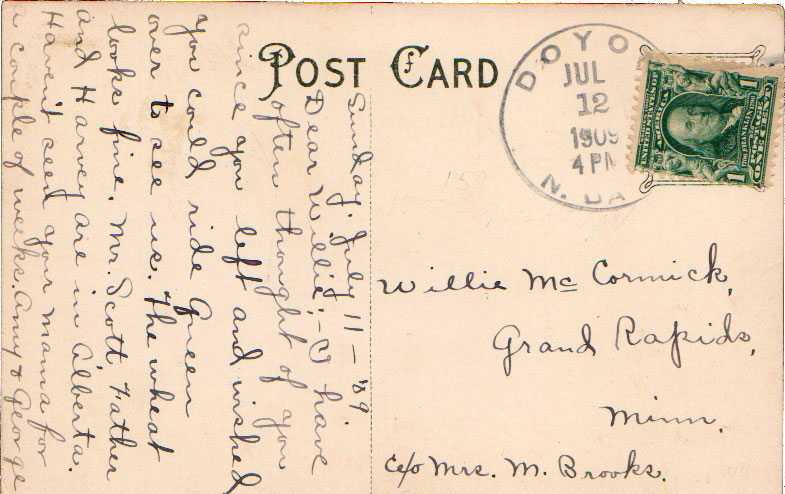 POST CARD
DOYO
JUL
12
1909
4 PM
N. DA
1
ONE CENT
1
Sunday, July 11 — '09.
Dear Willie; — I have
often thought of you
since you left and wished
you could ride Queen
over to see us. The wheat
looks fine. Mr. Scott Father
and Harvey are in Alberta.
Haven't seen your mama for
a couple of weeks. Amy & George
Willie Mc Cormick,
Grand Rapids,
Minn.
c/o Mrs. M. Brooks.